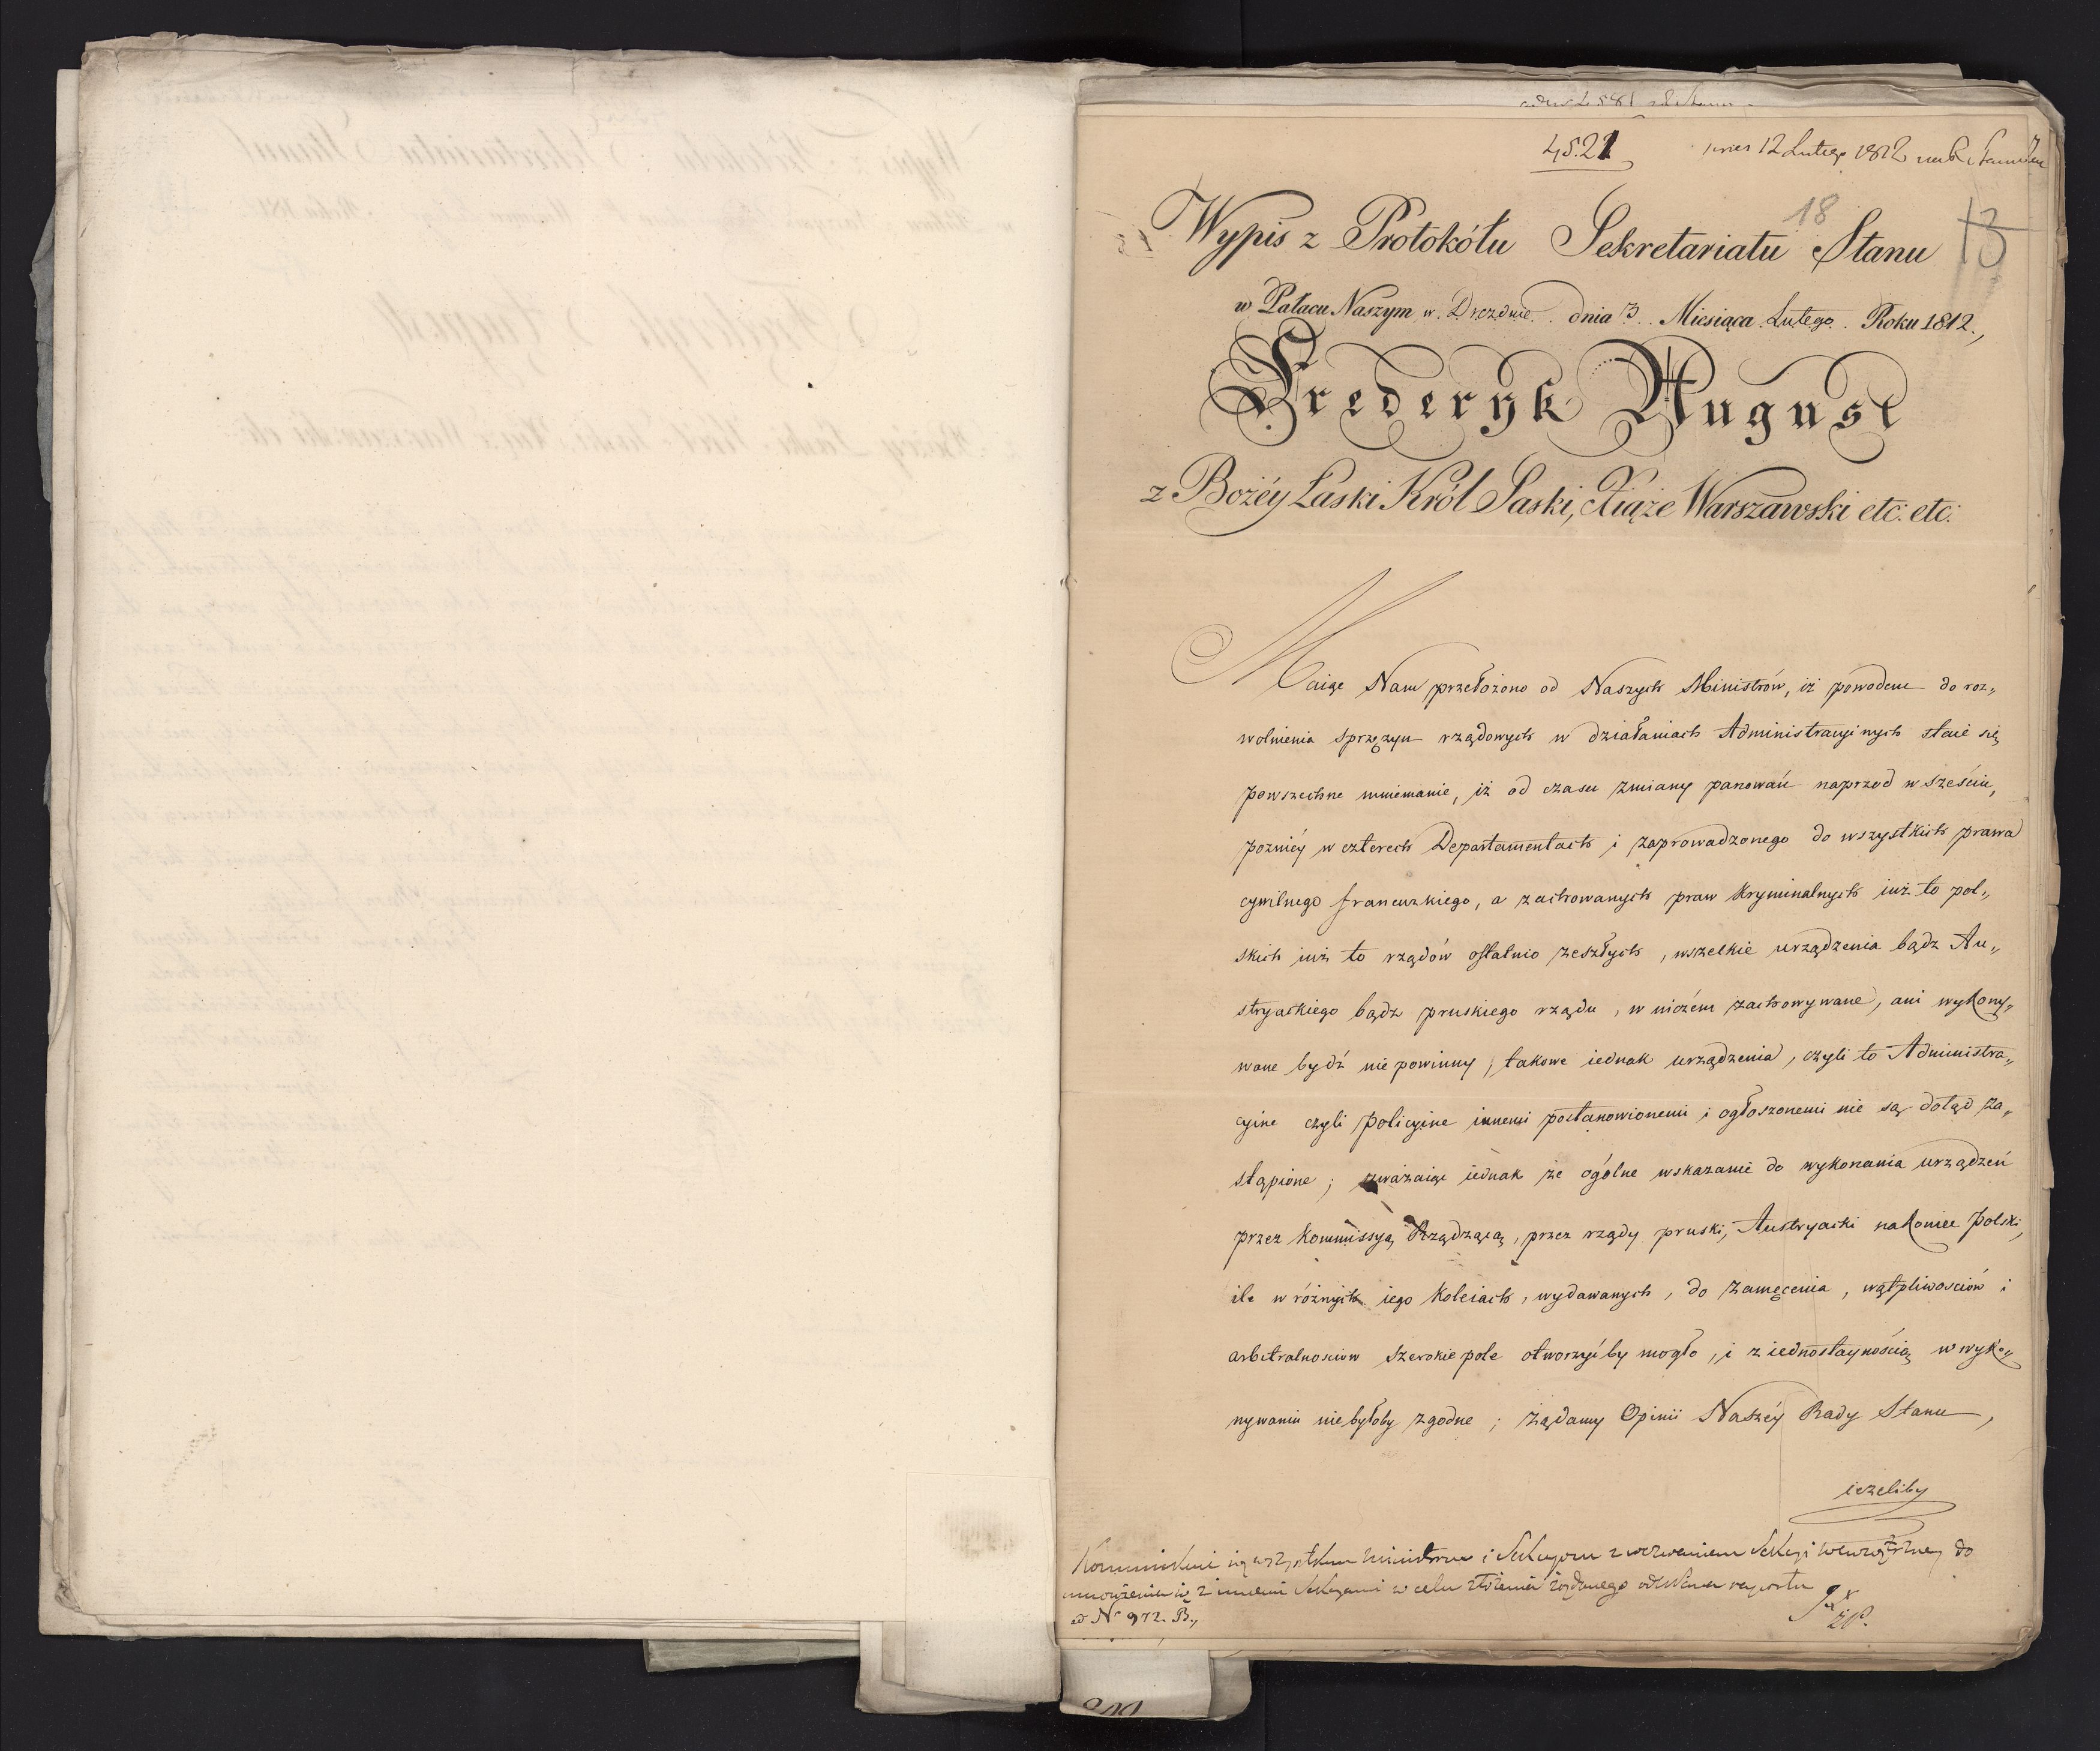 4521
12 Lutego 1812
18
13
Wypis z Protokółu Sekretariatu Stanu
w Pałacu Naszym w Dreznie dnia 3 Miesiąca Lutego Roku 1812.,
Frederyk August
z Bożéy Łaski Król Saski, Xiąże Warszawski etc: etc:
Maiąc Nam przełożono od Naszych Ministrów, iż powodem do roz„
wolnienia sprężyn rządowych w działaniach Administracyinych staie się
powszechne mniemanie, iż od czasu zmiany panowań naprzod w sześciu,
pozniéy w czterech Departamentach i zaprowadzonego do wszystkich prawa
cywilnego francuzkiego, a zachowanych praw kryminalnych iuż to pol„
skich iuż to rządów ostatnio zeszłych, wszelkie urządzenia bądz Au„
stryackiego bądz pruskiego rządu, w niczém zachowywane, ani wykony„
wane bydź nie powinny; takowe iednak urządzenia, czyli to Administra„
cyine czyli policyine innemi postanowionemi i ogłoszonemi nie są dotąd za„
stąpione; zważaiąc iednak że ogólne wskazanie do wykonania urządzeń
przez Kommissyą Rządzącą, przez rządy pruski, Austryacki nakoniec polski,
ile w różnych iego koleiach, wydawanych, do zamęcenia, wątpliwosciów i
arbitralnosciow szerokie pole otworzyćby mogło, i z iednostaynością w wyko„
nywaniu nie byłoby zgodne; żądamy Opinii Naszéy Rady Stanu,
ieżeliby
wszystkim Ministrom i Sekcyom z wezwaniem Sekcyi Wewnętrzney do
z innemi Sekcyami w celu złożenia żądanego raportu
ad N 972. B.,